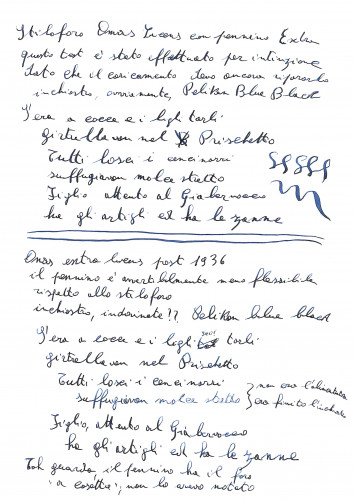 Stiloforo Omas Lucens con pennino Extra
questo test è stato effettuato per intinzione
dato che il caricamento devo ancora ripararlo
inchiostro, ovviamente, Pelikan Blue Black
S'era a cocce e i ligli tarli
girtrellavan nel Prischetto
Tutti losci i cencinorri
suffuggiavan molce stretto
Figlio attento al Giaberwocco
ha gli artigli ed ha le zanne
Omas extra lucens post 1936
il pennino è avvertibilmente meno flessibile
rispetto allo stiloforo
inchiostro, indovinate!? Pelikan blue black
S'era a cocce e i legli tarli
girtrellavan nel Prischetto
Tutti losci i cencinorri
suffuggiavan molce stretto
non era l'alimentatore
era finito l'inchiostro
Figlio, attento al Giaberwocco
ha gli artigli ed ha le zanne
Toh guarda il pennino ha il foro
"a cosetta", non lo avevo notato